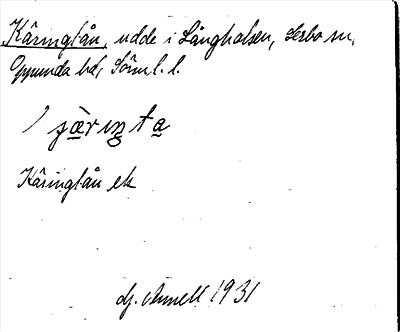 Käringtån, udde i Långhalsen, Lerbo sn,
Oppunda hd, Söml. l.
Käringtån ek
dj. Arnell 1931